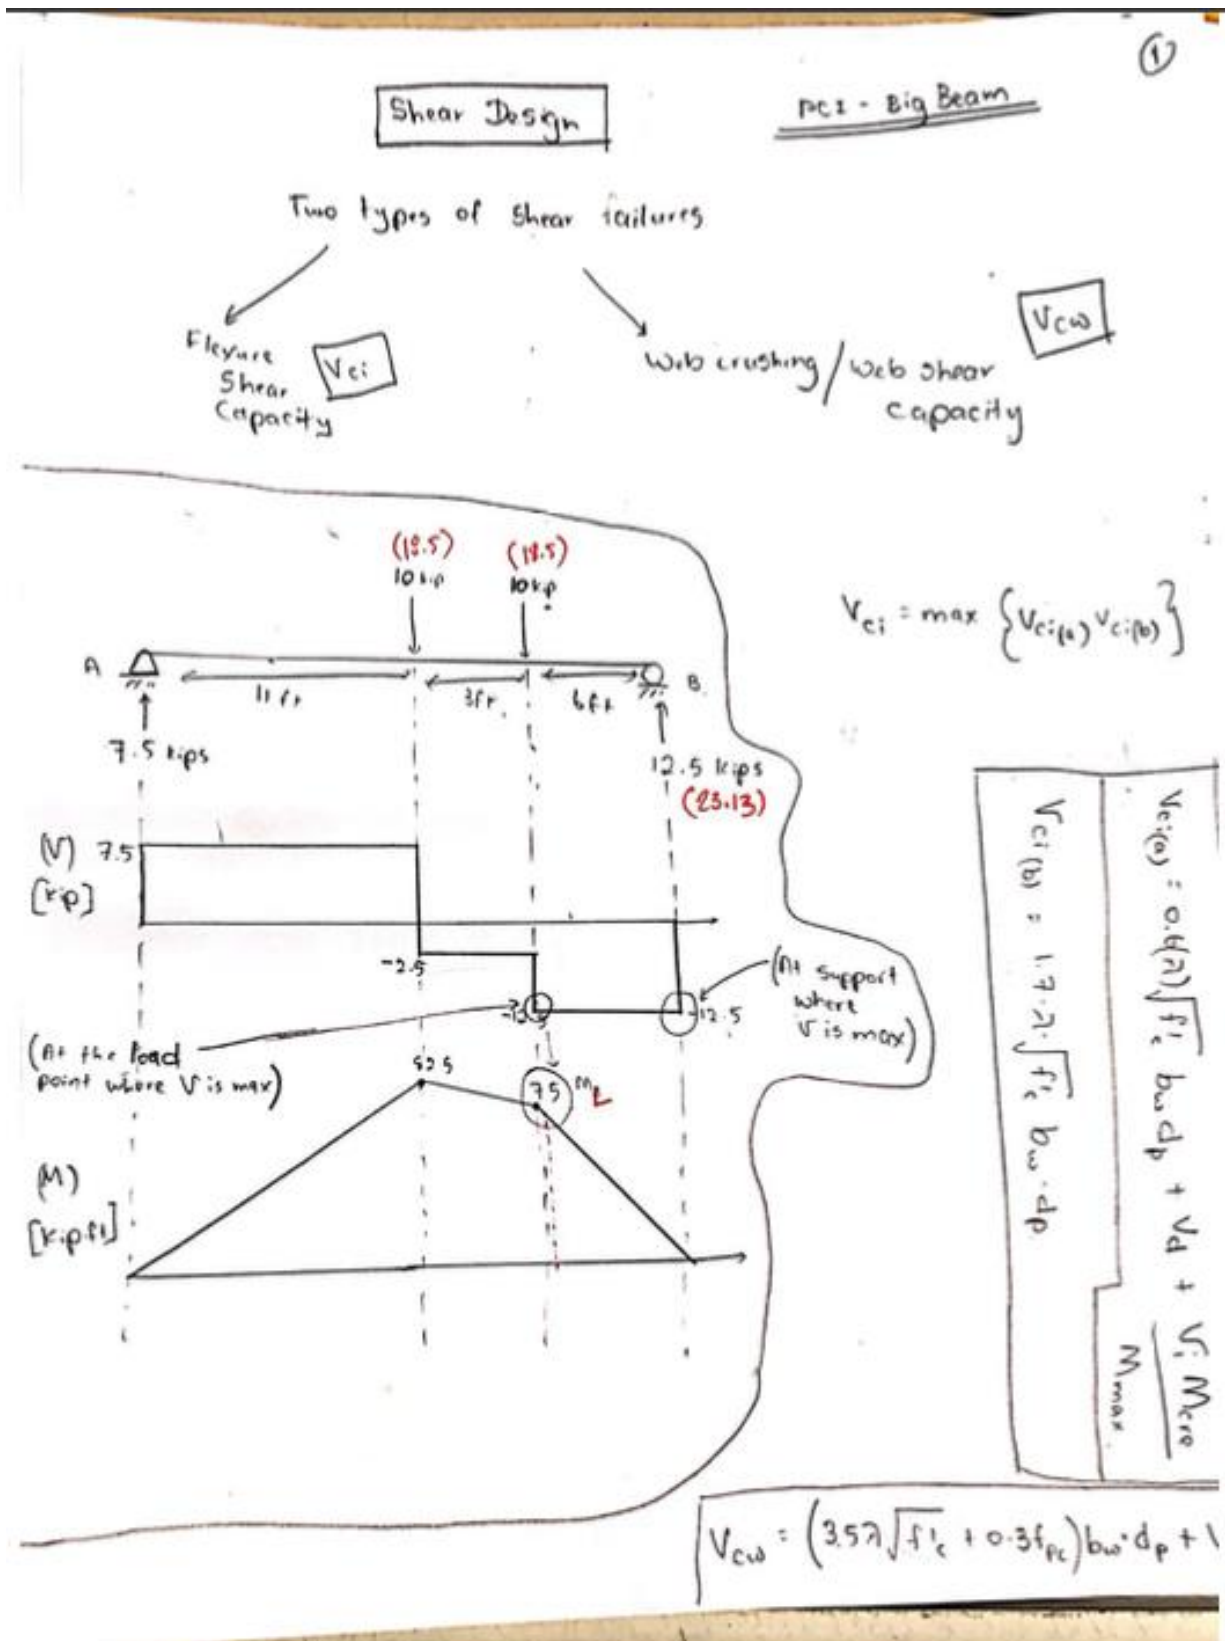 ①
Shear Design
PCI - Big Beam
Two types of shear failures
Flexure
Shear
Capacity
Vci
Web crushing / web shear
capacity
Vcw
(18.5)
(18.5)
10 kip
10 kip
A
B
11 ft
3ft
6ft
7.5 kips
12.5 kips
(23.13)
Vci = max {Vci(a) Vci(b)}
(V)
[kip]
7.5
-2.5
-12.5
-12.5
(At support
where
V is max)
(At the load
point where V is max)
82.5
75
ML
(M)
[kip.ft]
Vci(a) = 0.6(λ)√f'c bw dp + Vd + Vi Mcre / Mmax
Vci(b) = 1.7·λ·√f'c bw·dp
Vcw = (3.5λ√f'c + 0.3fpc) bw·dp +